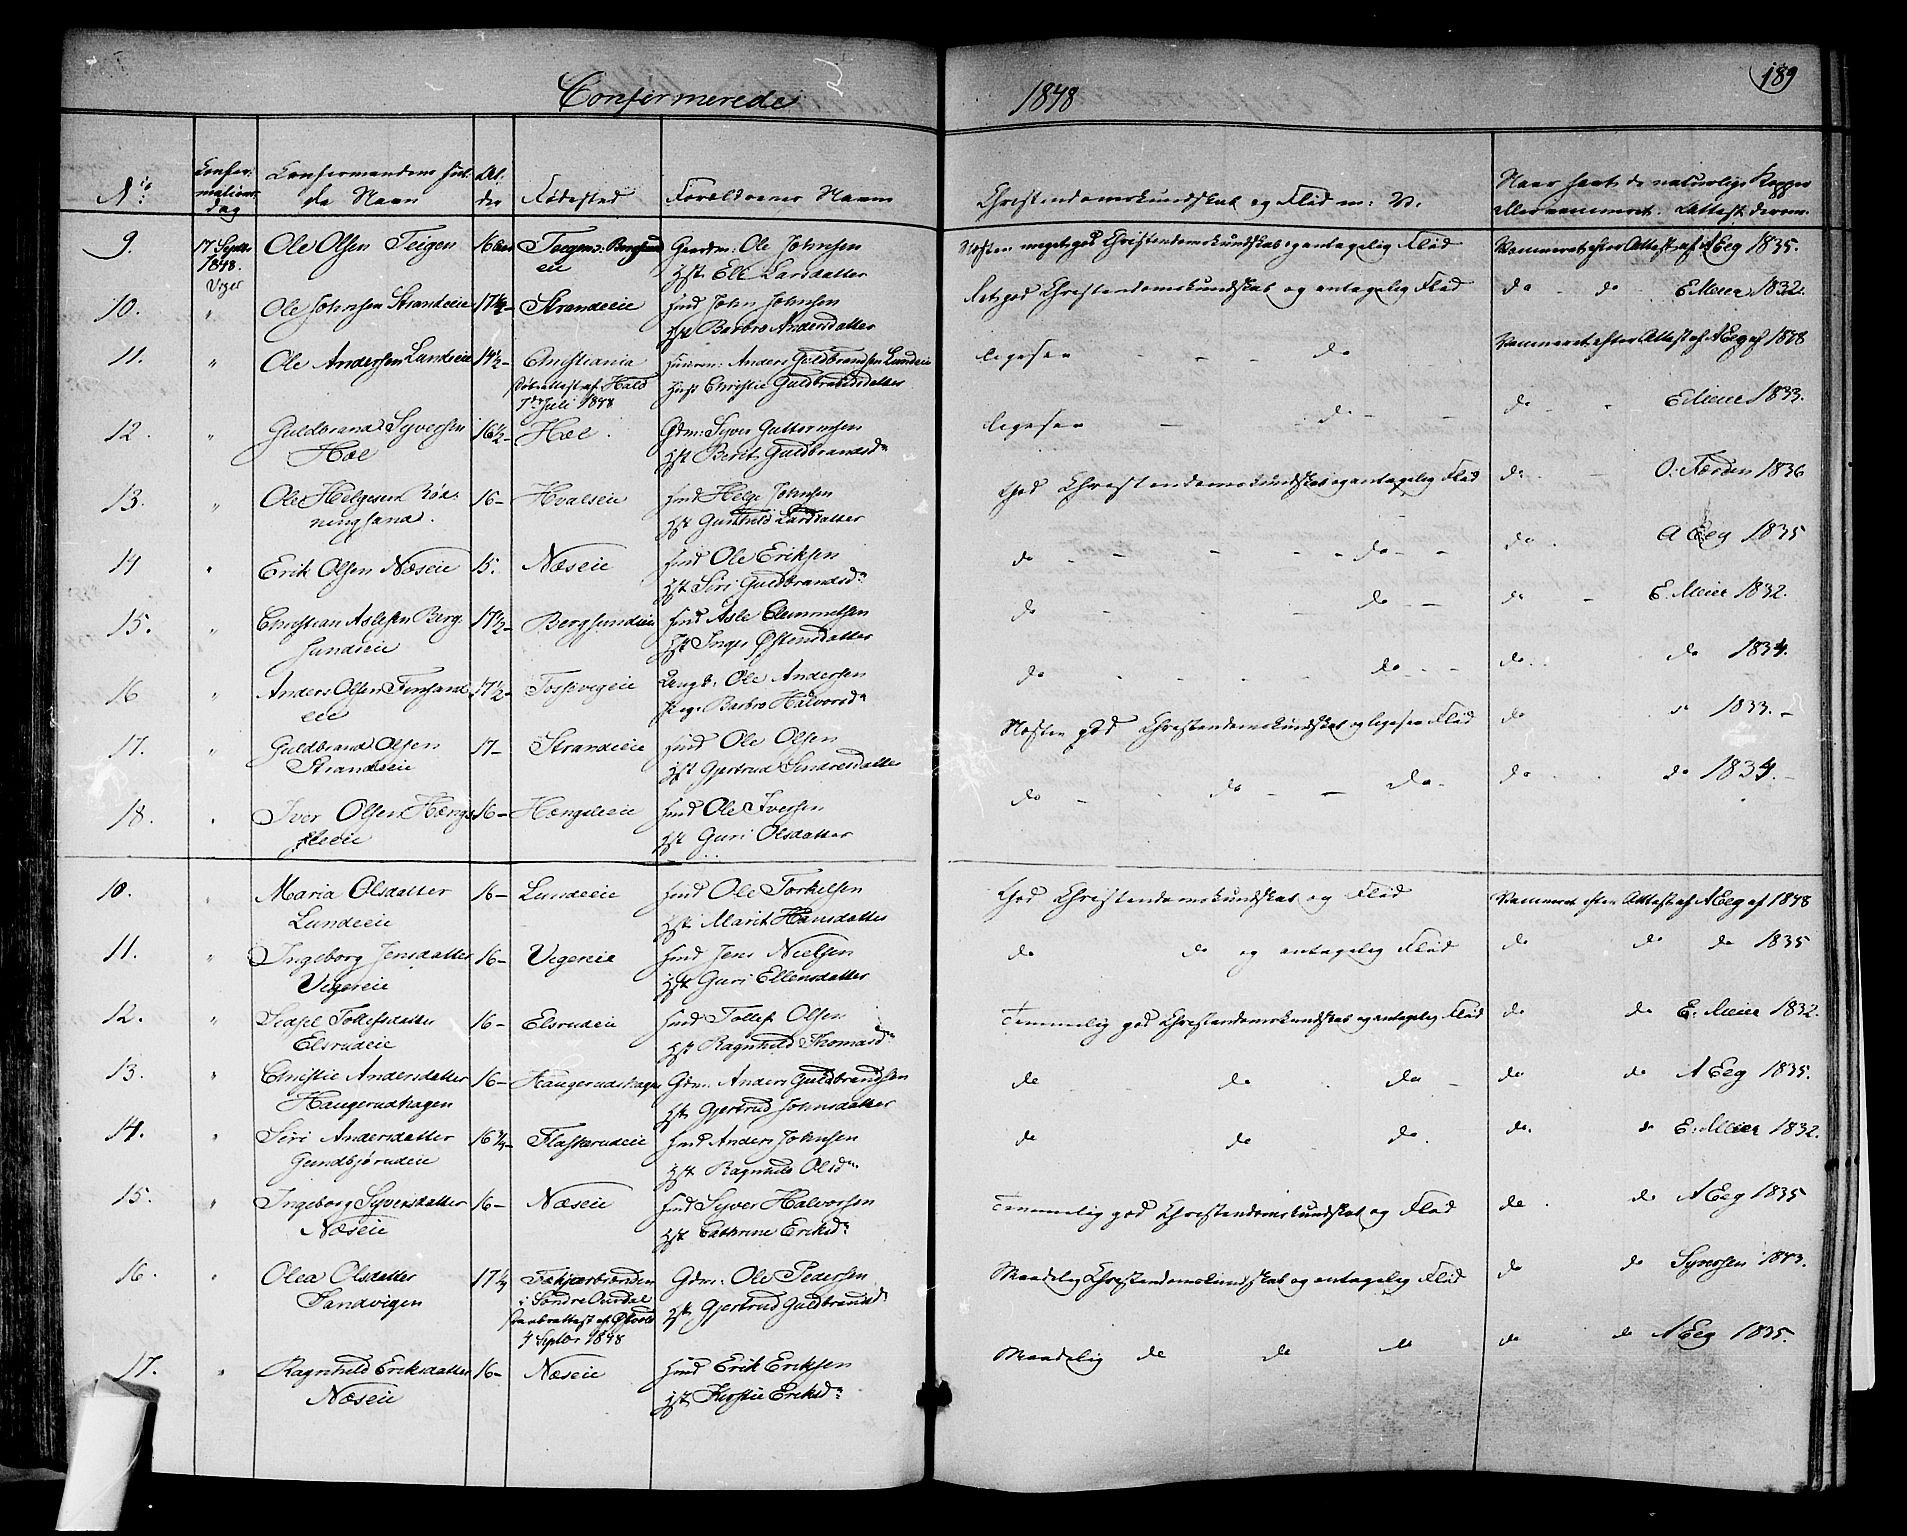 Confirmerede
1848
189
No
Confirmationsdag
Confirmandens fulde Navn
Alder
Fødested
Forældrenes Navn
Christendomskundskab og Flid m: V.
Naar havt de naturlige Kopper
eller vaccineret. Attest derom.
9. 17 Septbr 1848. Viger Ole Olsen Teigen 16 Teigen Gaardm: Ole Johnsen
Hst Eli Larsdatter
Næsten meget god Christendomskundskab og antagelig Flid Vaccineret efter Attest af A Eeg 1835.
10. " Ole Johnsen Strandeie 17½ - Strandeie Hmd John Johnsen
Hst Barbro Andersdatter
Ret god Christendomskundskab og antagelig Flid do - do - E Meier 1832.
11. " Ole Andersen Lundeie 19½ - Christiania Huusm: Anders Guldbrandsen Lundeie
Døbeattest af Hald
7de Juli 1848
Hust Christie Guldbrandsdatter
ligesaa - - - do Vaccineret efter Attest af A Eeg af 1848
12. " Guldbrand Syversen
Hæl
16½ - Hæl. Gdm: Syver Guttormsen
Hst Berit Guldbrandsdr
ligesaa - do - - do - - E Meier 1833.
13. " Ole Helgesen Rød-
ningsand.
16 - Hvalseie Hmd Helge Johnsen
Hst Gunhild Larsdatter
God Christendomskundskab og antagelig Flid do. - O. Færden 1836
14 " Erik Olsen Næseie 15. Næseie Hmd Ole Eriksen
Hst Siri Guldbrandsdr
do - - - - do - - do. A Eeg 1835
15. " Christian Aslesen Berg-
sundeie
17½ - Bergsundeie Hmd Asle Clemmetsen
Hst Inger Østensdatter
do - - - do - - do - E. Meier 1832.
16 " Anders Olsen Finsand
eie
17½ - Fossevigeie Lægd: Ole Andersen
Pige Barbro Halvorsdr
do - - - - do - - do. . do 1834.
17. " Guldbrand Olsen
Strandeie
17 - Strandeie Hmd Ole Olsen
Hst Gjertrud Sindresdatter
Næsten god Christendomskundskab og ligesaa Flid do do 1833. -
18. " Iver Olsen Hængs-
leeie
16 - Hængsleeie Hmd Ole Iversen
Hst Guri Olsdatter
do - - do - - do - do . . do 1834. -
10. " Maria Olsdatter
Lundeeie
16 - Lundeeie Hmd Ole Torkelsen
Hst Marit Hansdatter
God Christendomskundskab og Flid Vaccineret efter Attest af A Eeg af 1848
11. " Ingeborg Jensdatter
Vigereie
16 - Vigereie Hmd Jens Nielsen
Hst Guri Ellensdatter
do do og antagelig Flid do do do 1835
12. " Sidsel Tollefsdatter
Elsrudeie
16 - Elsrudeie Hmd Tollef Olsen
Hst Ragnhild Thomasdr
Temmelig god Christendomskundskab og antagelig Flid do do E. Meier 1832.
13. " Christie Andersdatter
Haugerudhagen
16 - Haugerudshagen Gdm: Anders Guldbrandsen
Hst Gjertrud Johnsdatter
do - do . do - do do A Eeg 1835.
14. " Siri Andersdatter
Gundbjørudeie
16¼ - Flaskerudeie Hmd Anders Johnsen
Hst Ragnhild Olsdr
do do do. do. do E. Meier 1832.
15. " Ingeborg Syversdatter
Næseie
16 - Næseie Hmd Syver Halvorsen
Hst Cathrine Eriksdr
Temmelig god Christendomskundskab og Flid do . do A Eeg 1835
16. " Olea Olsdatter
Sandvigen
17¼
i Søndre Ourdal
4 Septbr 1848
Gdm: Ole Pedersen
Hst Gjertrud Guldbrandsdr
Maadelig Christendomskundskab og antagelig Flid do do Syversen 1843.
17. " Ragnhild Eriksdatter
Næseie
16 - Næseie Hmd Erik Eriksen
Hst Kirstie Eriksdr
Maadelig do do do do do A Eeg 1835.